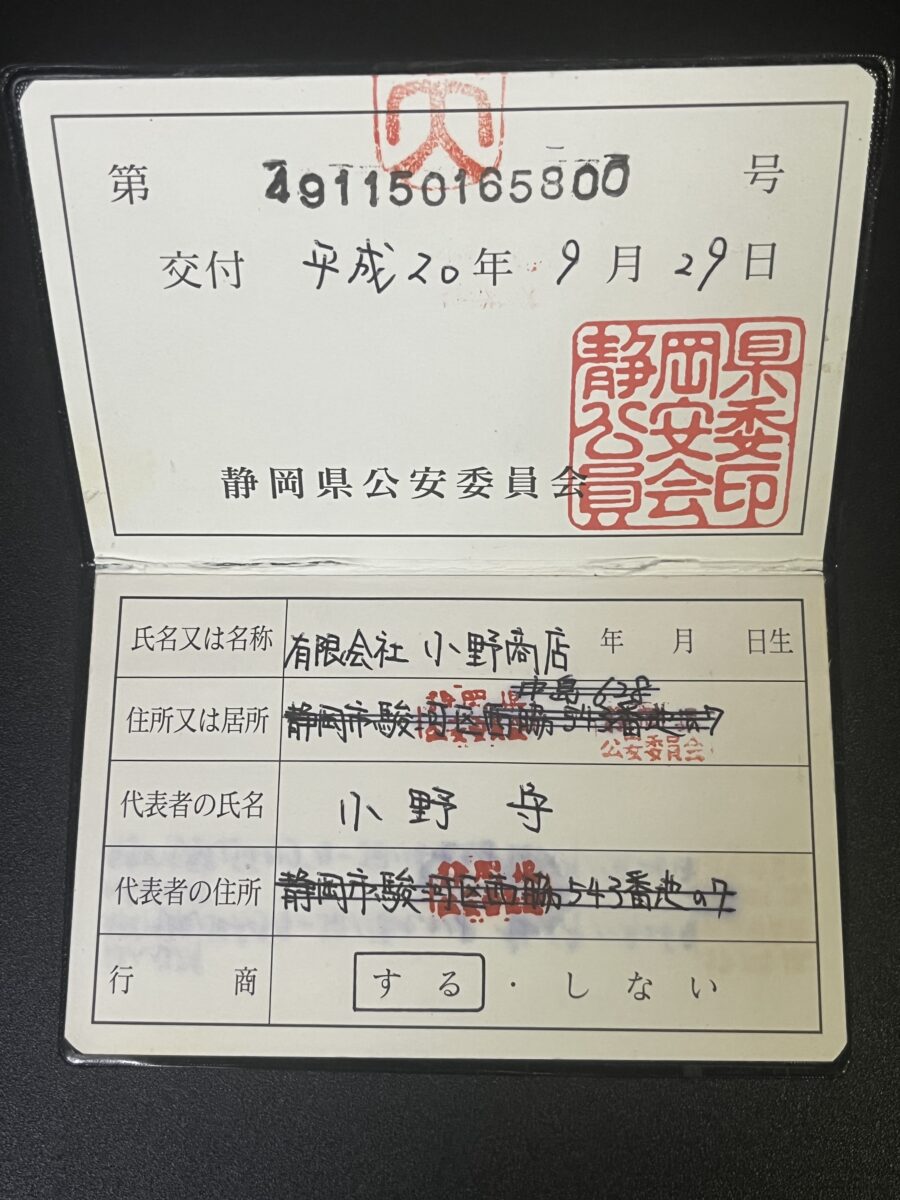 第 491150165800 号
交付 平成20年9月29日
静岡県公安委員会
静岡県公安委員会印
氏名又は名称 有限会社 小野商店 年 月 日生
中島 628
住所又は居所 静岡市駿河区西脇543番地の7
公安委員会
代表者の氏名 小野 守
代表者の住所 静岡市駿河区西脇543番地の7
行商 する・しない